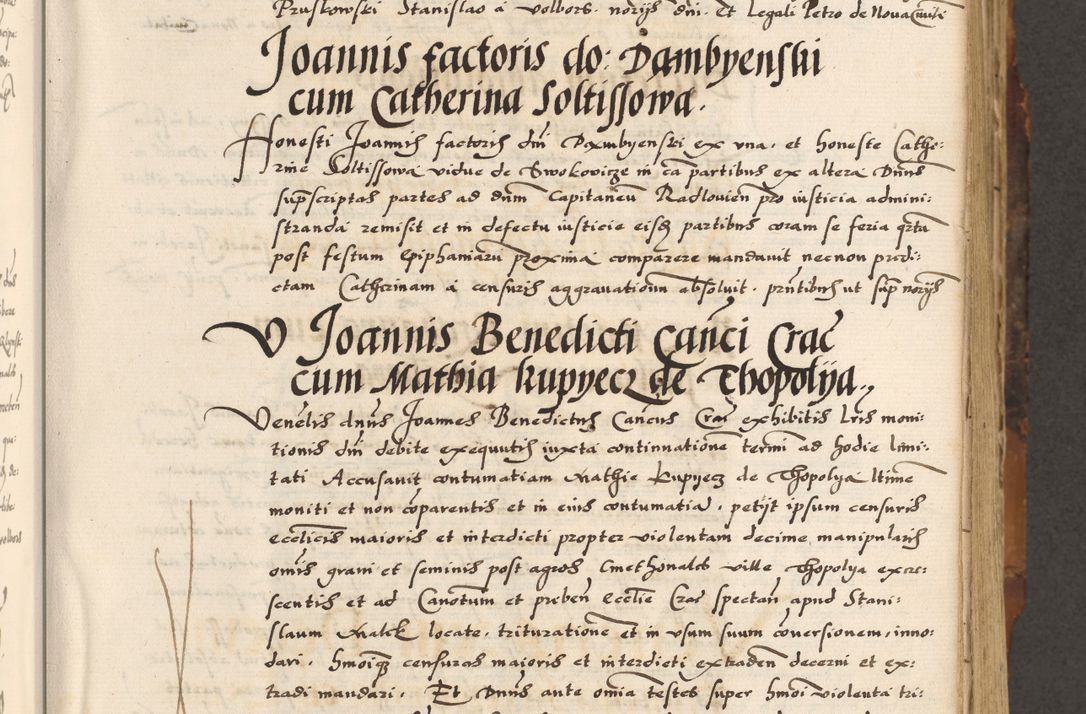 Pruskowski Stanislao á Volbors. norijs dni. Et Legati Petro de Nova Civili
Joannis factoris do: Dąmbyenski
cum Catherina Soltissowa.
Honesti Joannis factoris dni Dąmbyenski ex una. et honeste Cathe:
rine Soltissowa vidue de Swokowicze in ca partibus ex altera Dnus
supscriptas partes ad dnm Capitaneu Radlovien pro iusticia admini:
stranda remisit et in defectu iusticie eisd partibus coram se feria qrta
post festum Epiphaniaru proxima comparere mandavit necnon predi:
ctam Catherinam á censuris aggravationu absolvit. pntibus ut sup norijs
V Joannis Benedicti Canci Crac
cum Mathia Kupyecz de Thopolya.
Venelis dnus Joannes Benedictus Cancus Crac exhibitis lris moni:
tionis dni debite exequutis iuxta continuatione termi ad hodie limi:
tati Accusavit contumatiam Mathie Kupyecz de Thopolya ltime
moniti et non coparentis et in eius contumatia. petijt ipsum censuris
ecclicis maioris et interdicti propter violentam decime manipularis
omis grani et seminis post agros Cmethonales ville Thopolya excre:
scentis et ad Canotum et preben Ecclie Crac spectan apud Stani:
slaum Malek locate. trituratione et in usum suum coversionem. inno:
dari. hmoiq censuras maioris et interdicti extraden decerni et ex:
tradi mandari. Et Dnus ante omia testes super hmoi violenta tri: